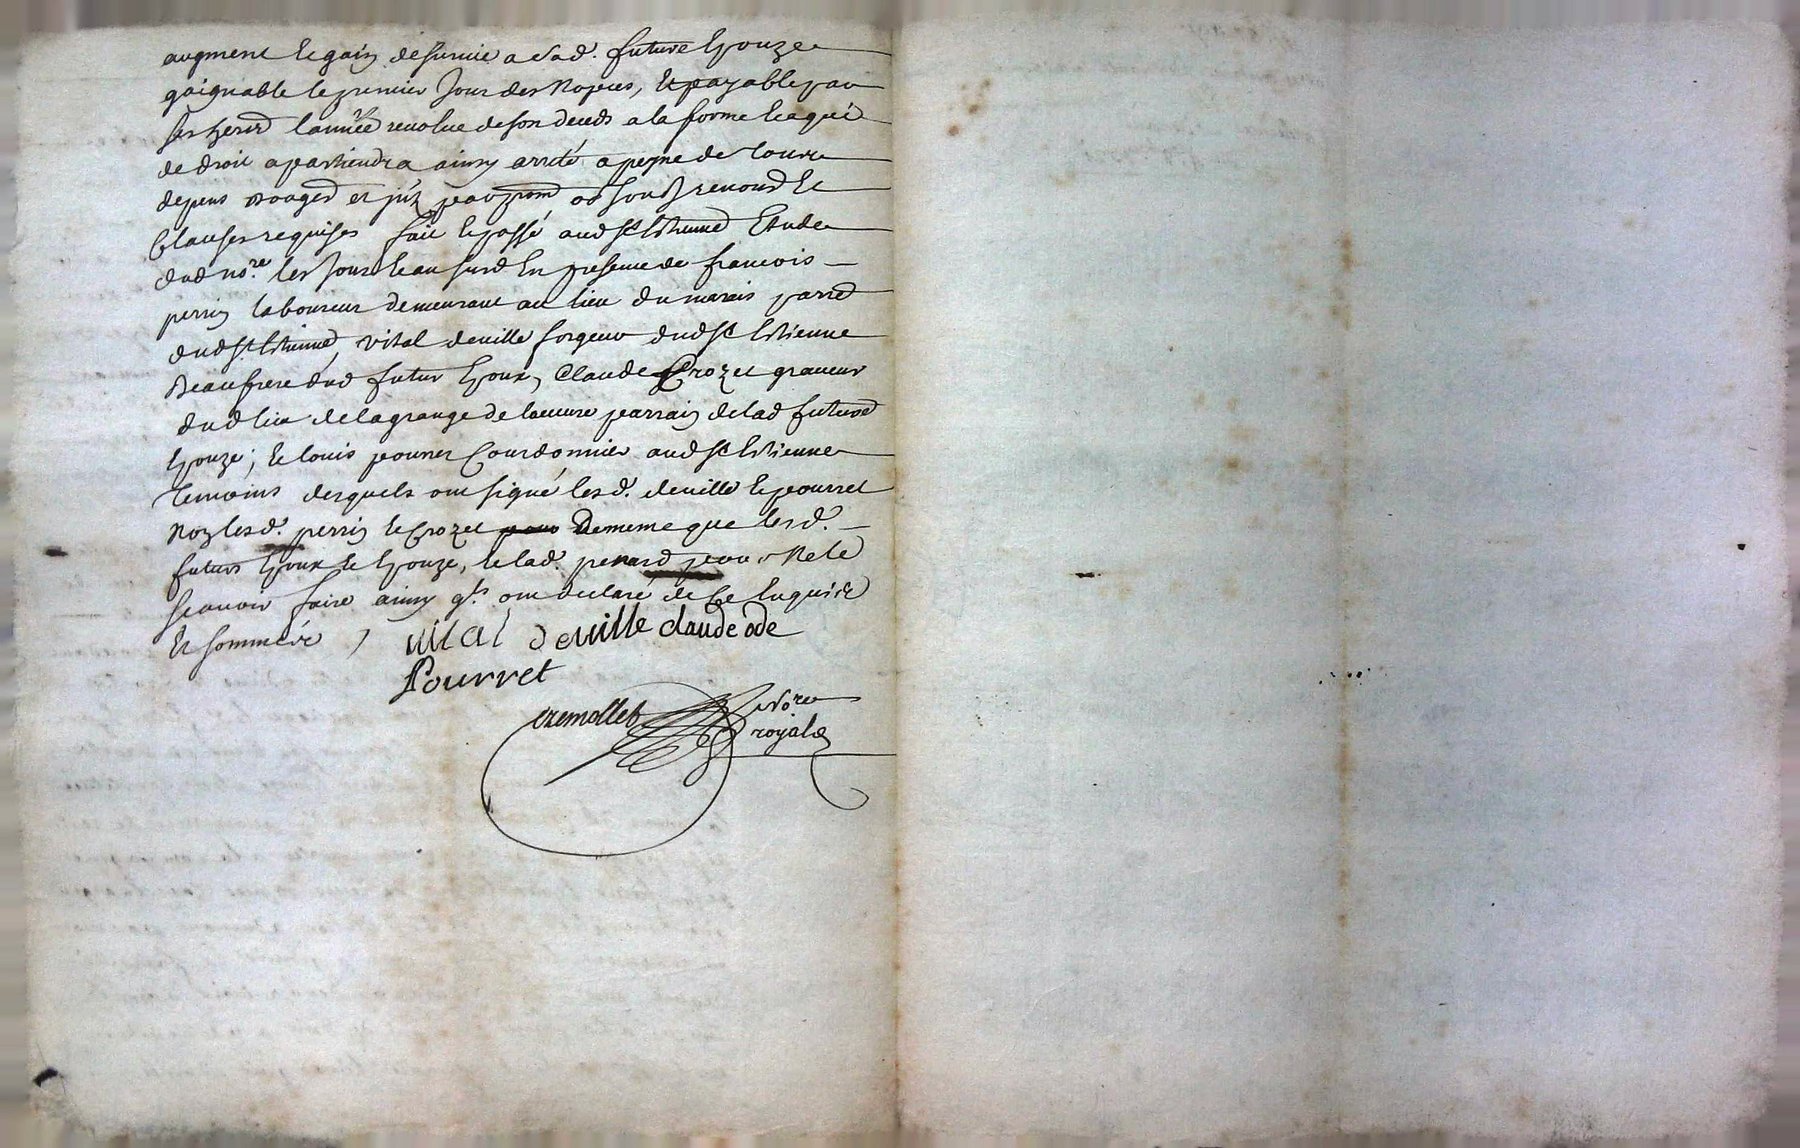 augment et gain de survie a sad. future Epouze
gaignable le premier Jour des Nopces, et payable par
ses herid l'année revolue de son deceds a la forme et a qui
de droit apartiendra ainsy arreté a peyne de tous
depens et par prom ob soub renond et
Clauses requises fait et passé aud st Etienne Etude
dud no.re les Jour et an susd En presence de francois
perrin laboureur demeurant au lieu du marais parred
dud st Etienne, vital deville forgeur dud st Etienne
Beaufrere dud futur Epoux, Claude Crozet graveur
dud lieu de la grange de parrain de lad future
Epouze; et louis pourret Courdonnier aud st Etienne
Temoins desquels ont signé lesd. deville et pourret
Non lesd. perrin et Crozet de meme que lesd.
futurs Epoux et Epouze, et lad. penard pour Ne le
scavoir faire ainsy qls ont declaré de Ce Enquis
Et sommée,
vital deville claude ode
Pourret
No.re
royal